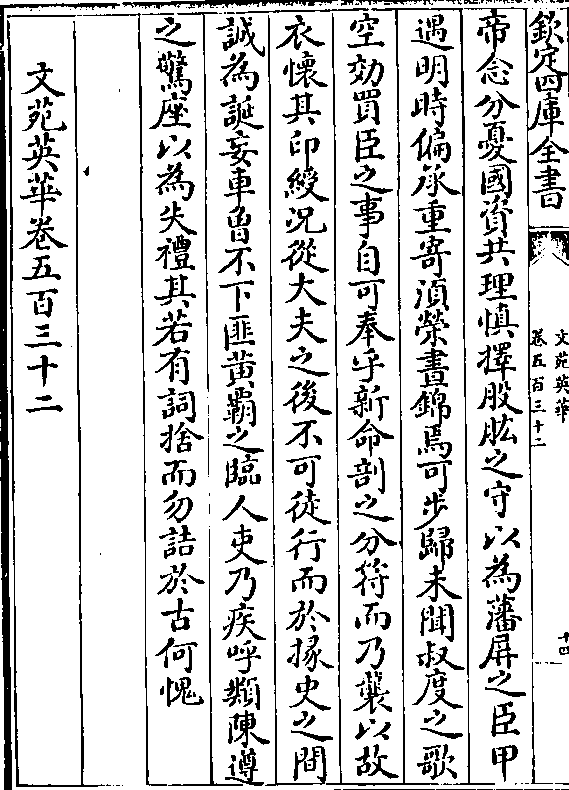 欽定四庫全書
文苑英華
卷五百三十二
十四
帝念分憂國資共理慎擇股肱之守以為藩屏之臣甲
遇明時偏承重寄湏榮晝錦焉可步歸未聞叔度之歌
空効買臣之事自可奉乎新命剖之分符而乃襲以故
衣懷其印綬况從大夫之後不可徒行而於掾史之間
誠為誕妄車曽不下匪黄霸之臨人吏乃疾呼𩔖陳遵
之驚座以為失禮其若有詞捨而勿詰於古何愧
文苑英華卷五百三十二